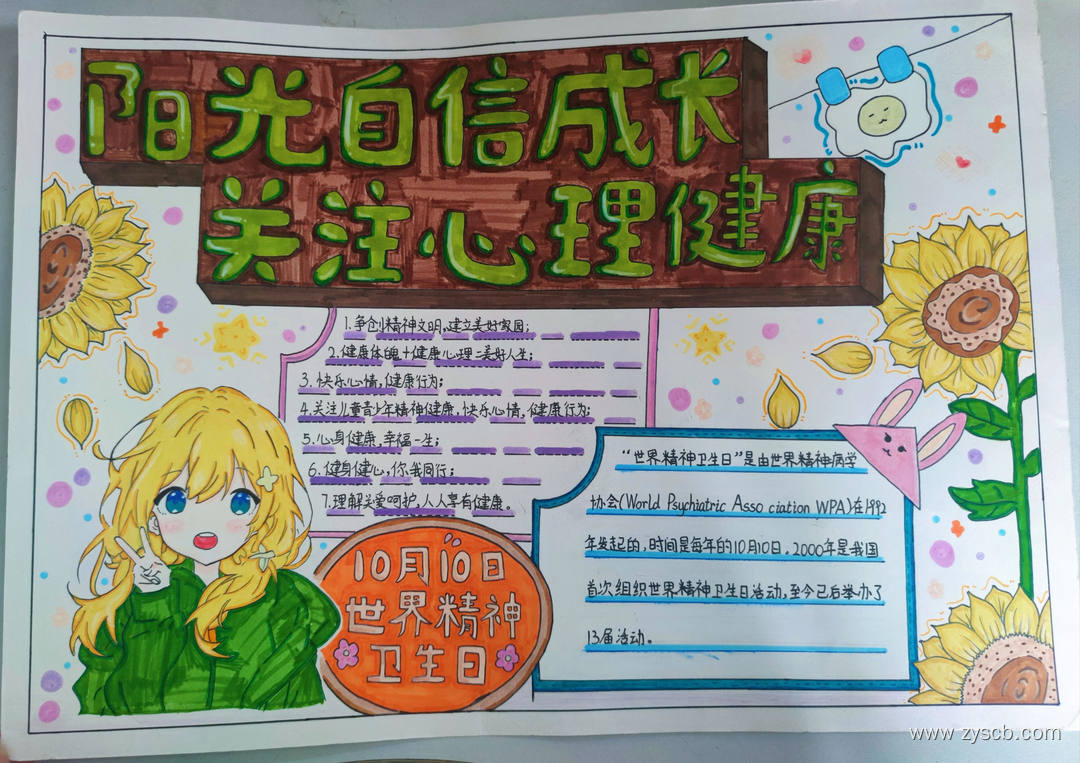 阳光自信成长
关注心理健康
1.争创精神文明,建立美好家园;
2.健康体魄+健康心理=美好人生;
3.快乐心情,健康行为;
4.关注儿童青少年精神健康,快乐心情,健康行为;
5.心身健康,幸福一生;
6.健身健心,你我同行;
7.理解关爱呵护,人人享有健康。
10月10日
世界精神
卫生日
“世界精神卫生日”是由世界精神病学
协会(World Psychiatric Asso ciation WPA)在1992
年发起的,时间是每年的10月10日。2000年是我国
首次组织世界精神卫生日活动,至今已后举办了
13届活动。
www.zyscb.com